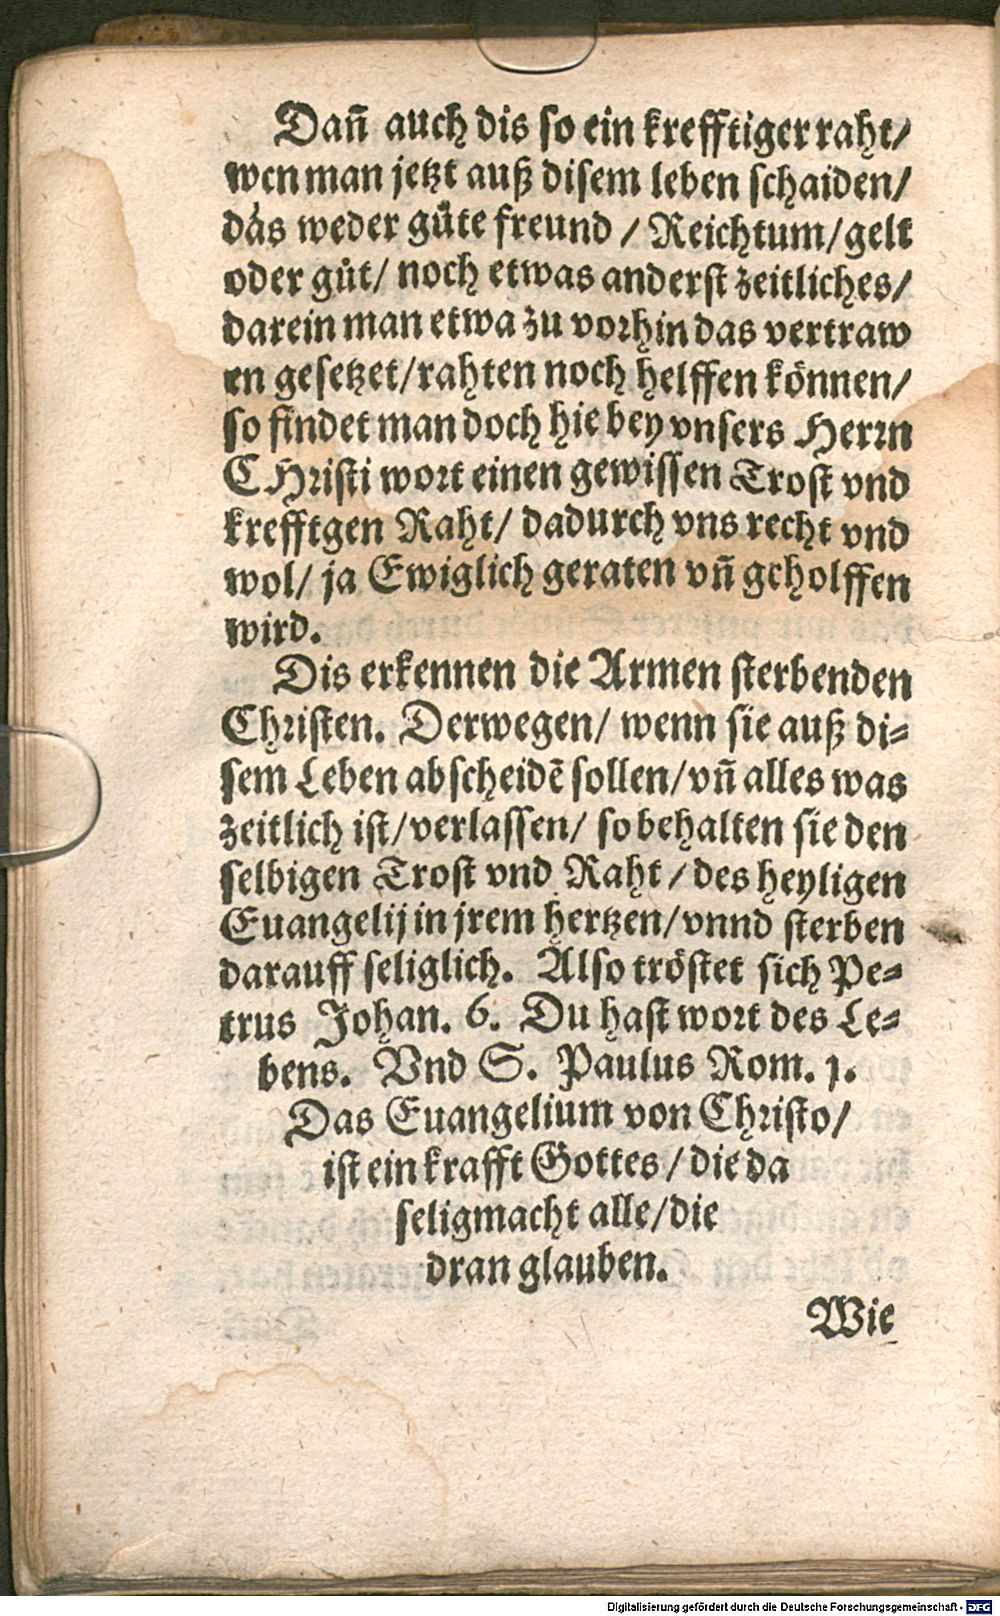 Dañ auch dis so ein krefftiger raht/
wen man jetzt auß disem leben schaiden/
das weder gůte freund / Reichtum/ gelt
oder gůt/ noch etwas anderst zeitliches/
darein man etwa zu vorhin das vertraw
en gesetzet/ rahten noch helffen können/
so findet man doch hie bey vnsers Herrn
CHristi wort einen gewissen Trost vnd
krefftgen Raht/ dadurch vns recht vnd
wol/ ja Ewiglich geraten vñ geholffen
wird.
Dis erkennen die Armen sterbenden
Christen. Derwegen/ wenn sie auß di=
sem Leben abscheidē sollen/ vñ alles was
zeitlich ist/ verlassen/ so behalten sie den
selbigen Trost vnd Raht / des heyligen
Euangelij in jrem hertzen/ vnnd sterben
darauff seliglich. Also tröstet sich Pe=
trus Johan. 6. Du hast wort des Le=
bens. Vnd S. Paulus Rom. 1.
Das Euangelium von Christo/
ist ein krafft Gottes / die da
seligmacht alle/ die
dran glauben.
Wie
Digitalisierung gefördert durch die Deutsche Forschungsgemeinschaft - DFG